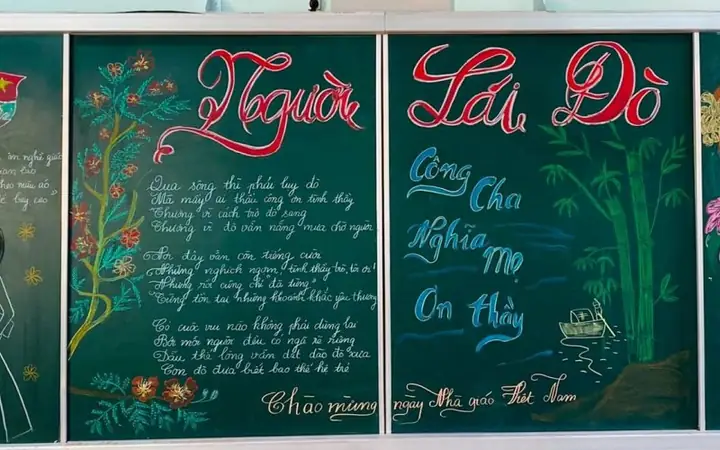 Người Lái Đò
Qua sông thì phải luỵ đò
Mà mấy ai thấu công ơn tình thầy
Thương vì cách trò đò sang
Thương vì đò vẫn nắng mưa chờ người
Nơi đây vẫn còn tiếng cười
Những nghịch ngợm, tình thầy trò, tôi ơi!
Nhưng rồi cũng chỉ "đã từng"
Từng tồn tại những khoảnh khắc yêu thương
Có cuộc vui nào không phải dừng lại
Bởi mỗi người đều có ngã rẽ riêng
Dẫu thế lòng vẫn dắt đò xưa
Con đò đưa biết bao thế hệ trẻ
Công Cha
Nghĩa Mẹ
Ơn thầy
Chào mừng ngày Nhà giáo Việt Nam